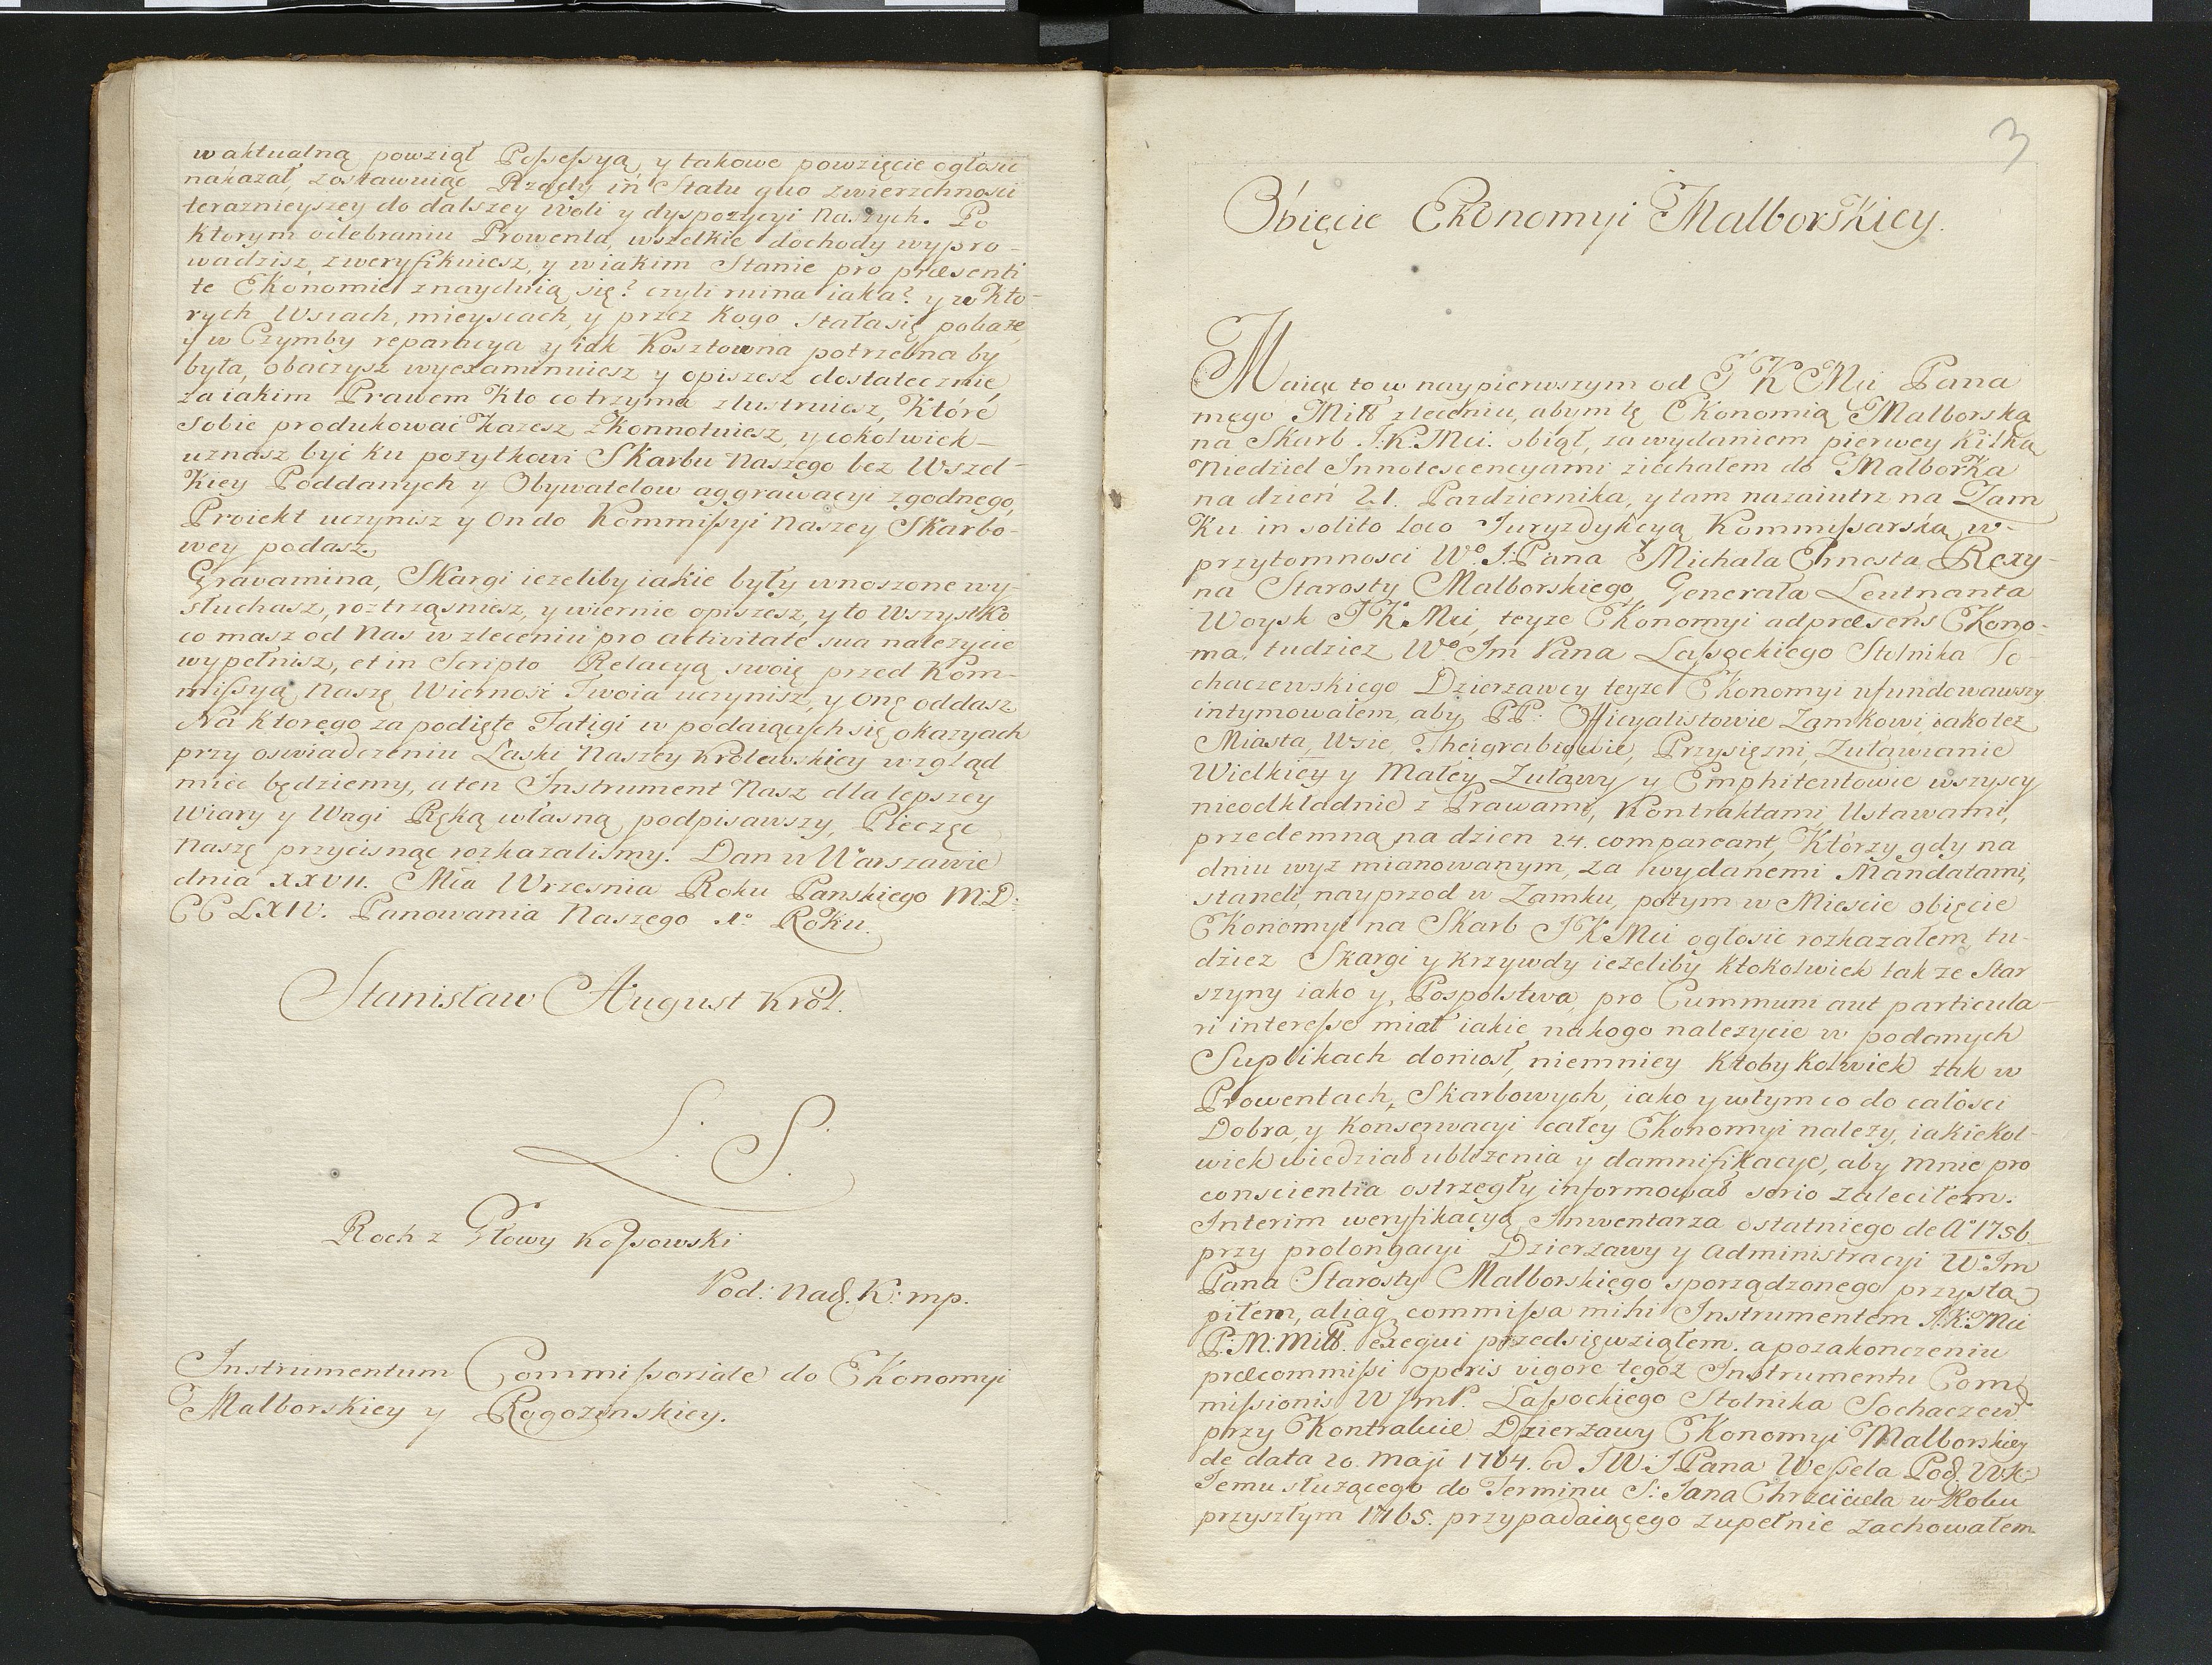 w aktualną powziął Possessyą, y takowe powzięcie ogłosic
nakazał, zostawuiąc Rządy in Statu quo zwierzchnosci
teraznieyszey do dalszey Woli y dyspozycyi Naszych. Po
ktorym odebraniu Prowenta, wszelkie dochody wypro-
wadzisz, zweryfikuiesz, y w iakim Stanie pro præsenti
te Ekonomie znayduią się? czyli ruina iaka? y w Kto-
rych Wsiach, mieyscach, y przez Kogo Stała się pokaże,
y w Czymby reparacya y iak Kosztowna potrzebna by
była, obaczysz wyexaminuiesz y opiszesz dostatecznie,
za iakim Prawem Kto co trzyma zlustruiesz, Które
sobie produkować Każesz zKonnotuiesz, y cokolwiek
uznasz być ku pożytkowi Skarbu Naszego bez Wszel-
Kiey Poddanych y Obywatelow aggrawacyi zgodnego,
Proiekt uczynisz y On do Kommissyi Naszey Skarbo-
wey podasz.
Gravamina, Skargi ieżeliby iakie były wnoszone wy-
słuchasz, roztrząsniesz, y wiernie opiszesz, y to Wszystko
co masz od Nas w zleceniu pro activitate sua należycie
wypełnisz, et in Scripto Relacyą swoię przed Kom-
missyą Naszę Wierność Twoia uczynisz, y Onę oddasz
Na Ktorego za podięte Fatigi w podaiących się okazyach
przy oswiadczeniu Łaski Naszey Krolewskiey wzgląd
mieć będziemy, a ten Instrument Nasz dla lepszey
Wiary y Wagi Ręką własną podpisawszy, Pieczęć
Naszę przycisnąć rozkazalismy. Dan w Warszawie
dnia XXVII. Mca Wrzesnia Roku Panskiego M:D:
CCLXIV. Panowania Naszego 1o Roku.
Stanisław August Król.
L. S.
Roch z Głowy Kossowski
Pod: Nad. K: mp.
Instrumentum Commissoriale do Ekonomyi
Malborskiey y Rogozinskiey.
3
Obięcie Ekonomyi Malborskiey.
Maiąc to w naypierwszym od J K Mci Pana
mego Miłł zleceniu, abym tę Ekonomią Malborską
na Skarb J:K:Mci. obiął, za wydaniem pierwey Kilką
Niedziel Innotescencyami ziechałem do Malborka
na dzień 21. Pazdziernika, y tam nazaiutrz na Zam
Ku in solito loco Juryzdykcyą Kommissarską w-
przytomnosci Wo J:Pana Michała Ernesta Rexy-
na Starosty Malborskiego, Generała Leutnanta
Woysk J K Mci, teyże Ekonomyi ad præsens Ekono-
ma, tudziez Wo Jm Pana Lassockiego Stolnika So-
chaczewskiego Dzierżawcy teyże Ekonomyi ufundowawszy
intymowałem, aby PP: Officyalistowie Zamkowi iako też
Miasta, Wsie, Theigrabiowie, Przysięzni, Żuławianie
Wielkiey y Małey Żuławy y Emphiteutowie wszyscy
nieodkładnie z Prawami, Kontraktami, Ustawami,
przedemną na dzien 24. compareant, Którzy gdy na
dniu wyż mianowanym, za wydanemi Mandatami,
staneli, nayprzod w Zamku, potym w Miescie obięcie
Ekonomyi na Skarb J K Mci ogłosić rozkazałem, tu-
dziez Skargi y krzywdy ieżeliby ktokolwiek tak ze Star
szyny iako y Pospolstwa, pro Cummuni aut particula-
ri interesse miał iakie, na kogo nalezycie w podanych
Suplikach doniosł, niemniey Ktoby kolwiek tak w
Prowentach, Skarbowych, iako y w tym co do całosci
Dobra, y Konserwacyi całey Ekonomyi należy, iakiekol-
wiek wiedział ubliżenia y damnifikacye, aby mnie pro
conscientia ostrzegły, informował serio zaleciłem.
Interim weryfikacyą Inwentarza ostatniego de Ao 1756.
przy prolongacyi Dzierżawy y administracyi W:Jm
Pana Starosty Malborskiego sporządzonego przystą-
piłem, aliaq commissa mihi Instrumentem J:K:Mci
P:M:Miłł. exequi przedsięwziąłem. a po zakonczeniu
præcommissi operis vigore tegoż Instrumentu Com-
missionis W JmP. Lassockiego Stolnika Sochaczew
przy Kontrakcie Dzierżawy Ekonomyi Malborskiey
de data 20. Maji 1764. od J W:J Pana Wessela Pod. W.K.
Jemu służącego do Terminu S: Jana Chrzciciela w Roku
przyszłym 1765. przypadaiącego zupełnie zachowałem